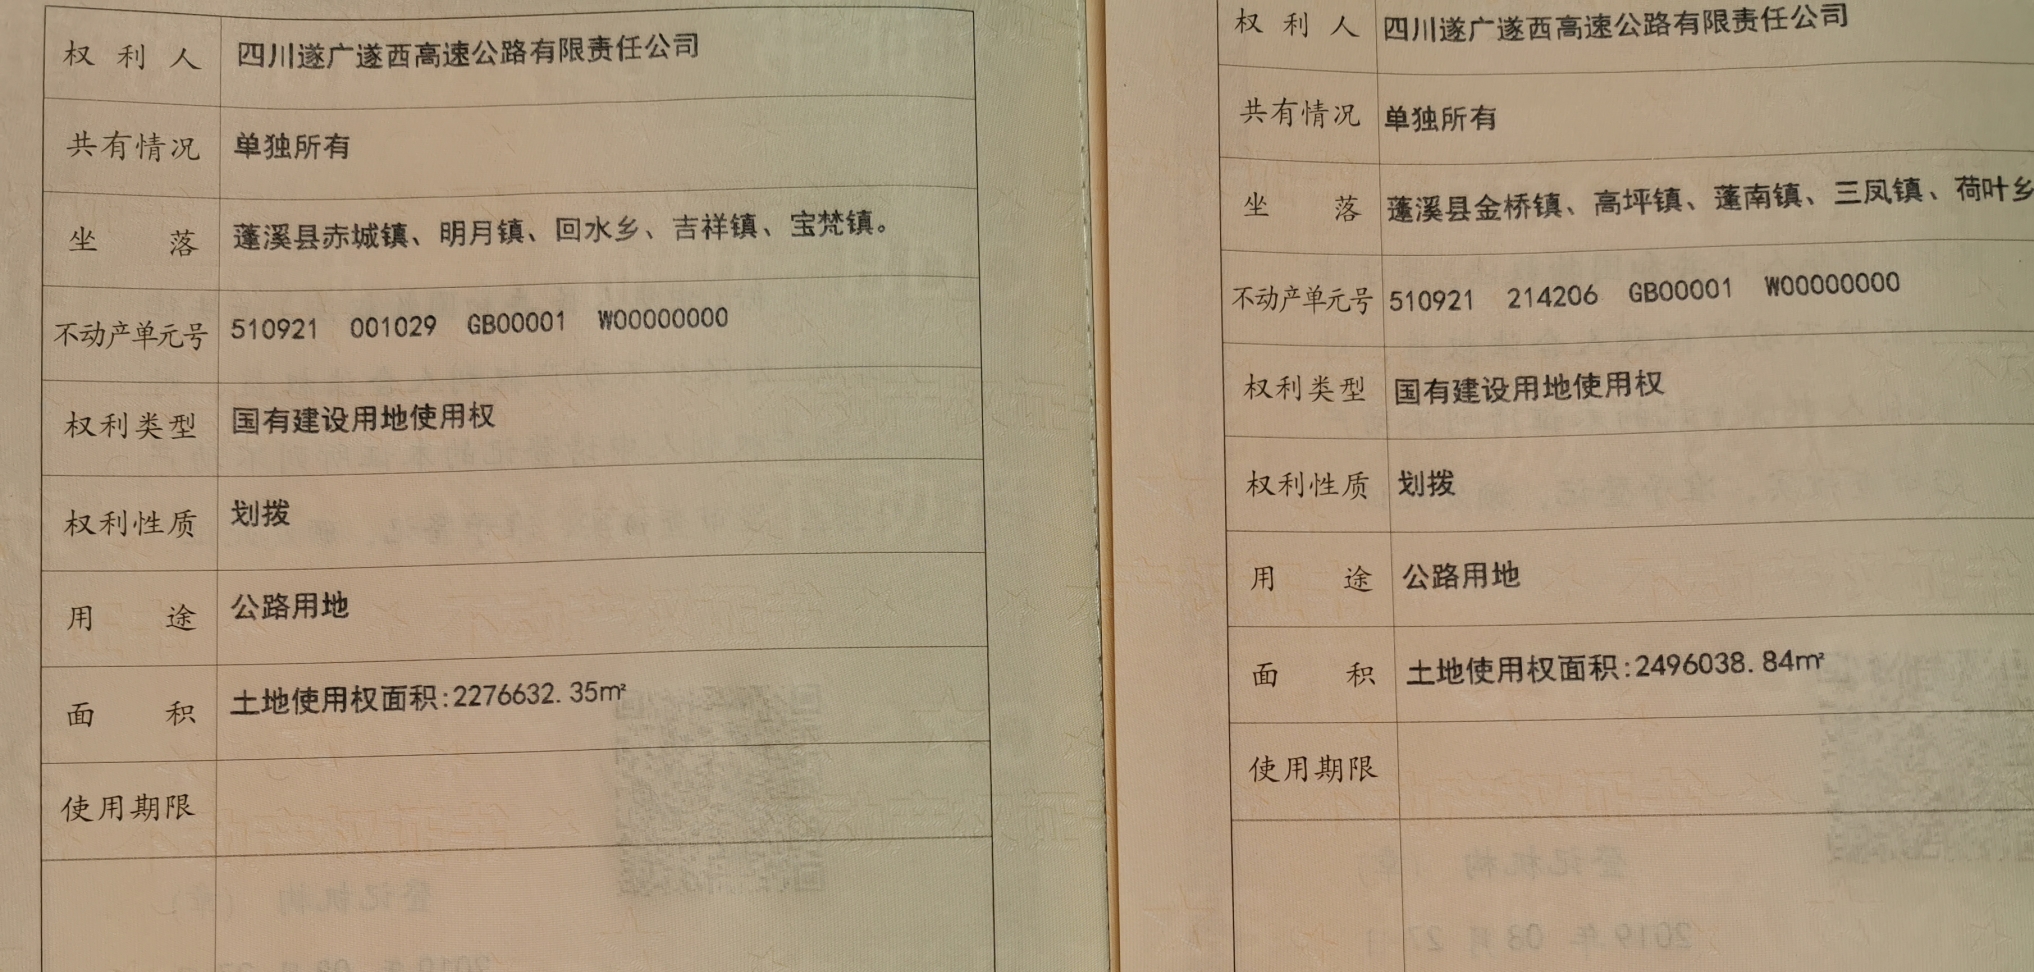 权利人 四川遂广遂西高速公路有限责任公司
共有情况 单独所有
坐落 蓬溪县赤城镇、明月镇、回水乡、吉祥镇、宝梵镇。
不动产单元号 510921 001029 GB00001 W00000000
权利类型 国有建设用地使用权
权利性质 划拨
用途 公路用地
面积 土地使用权面积:2276632.35㎡
使用期限
权利人 四川遂广遂西高速公路有限责任公司
共有情况 单独所有
坐落 蓬溪县金桥镇、高坪镇、蓬南镇、三凤镇、荷叶乡
不动产单元号 510921 214206 GB00001 W00000000
权利类型 国有建设用地使用权
权利性质 划拨
用途 公路用地
面积 土地使用权面积:2496038.84㎡
使用期限
登记机构 (章)
登记机构 (章)
2019年 08月 27日